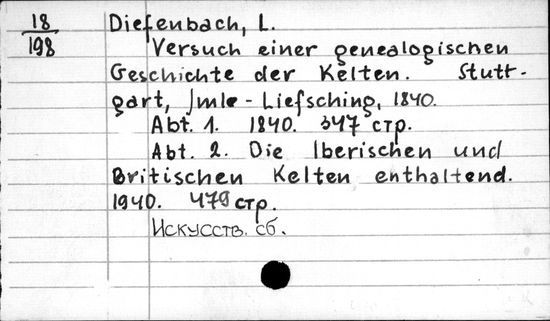 18
198
Diefenbach, L.
Versuch einer genealogischen
Geschichte der Kelten. Stutt-
gart, Imle - Liefsching, 1840.
Abt. 1. 1840. 347 стр.
Abt. 2. Die Iberischen und
Britischen Kelten enthaltend.
1940. 479 стр.
Искусств. сб.